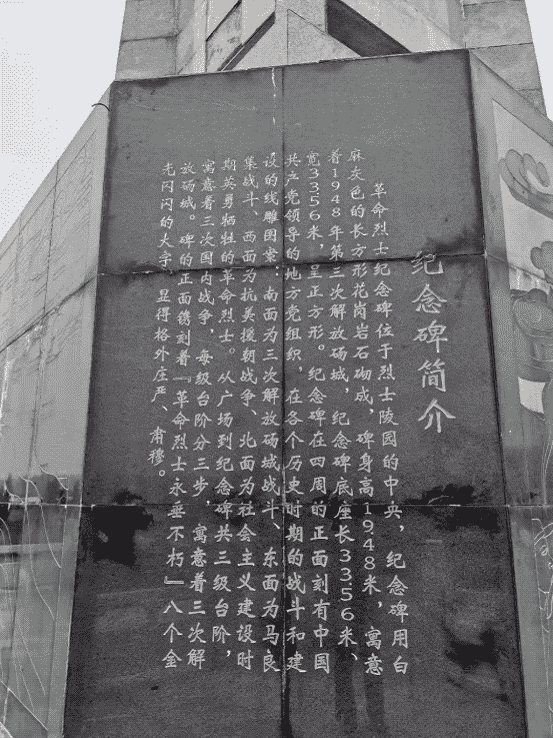 纪念碑简介
革命烈士纪念碑位于烈士陵园的中央，纪念碑用白
麻灰色的长方形花岗岩石砌成，碑身高1948米，寓意
着1948年第三次解放砀城，纪念碑底座长3356米、
宽3356米，呈正方形。纪念碑在四周的正面刻有中国
共产党领导的地方党组织，在各个历史时期的战斗和建
设的线雕图案：南面为三次解放砀城战斗、东面为马良
集战斗、西面为抗美援朝战争、北面为社会主义建设时
期英勇牺牲的革命烈士。从广场到纪念碑共三级台阶，
寓意着三次国内战争，每级台阶分三步，寓意着三次解
放砀城。碑的正面镌刻着『革命烈士永垂不朽』八个金
光闪闪的大字，显得格外庄严、肃穆。